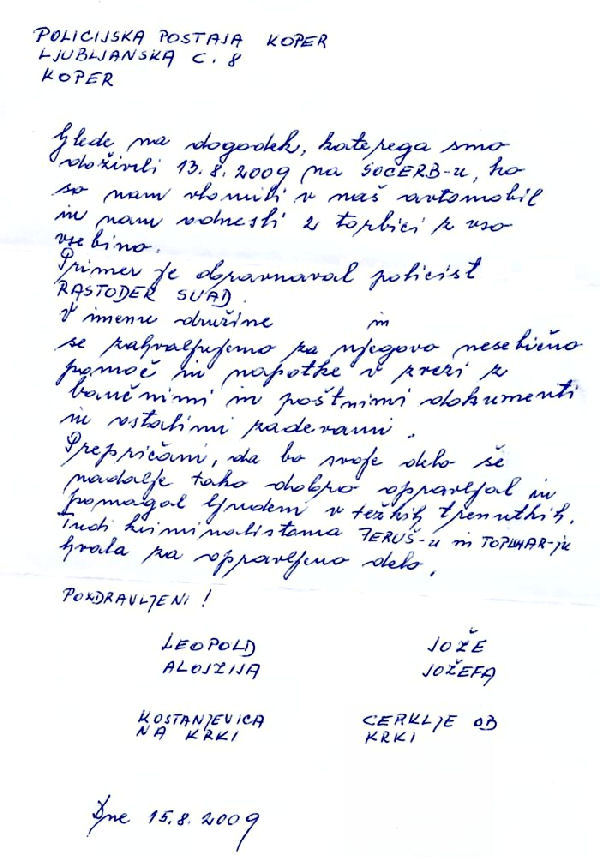 POLICIJSKA POSTAJA KOPER
LJUBLJANSKA C. 8
KOPER
Glede na dogodek, katerega smo
doživeli 13.8.2009 na SOCERB-u, ko
so nam vlomili v naš avtomobil
in nam odnesli 2 torbici z vso
vsebino.
Primer je obravnaval policist
RASTODER SUAD.
V imenu družine in
se zahvaljujemo za njegovo nesebično
pomoč in napotke v zvezi z
bančnimi in poštnimi dokumenti
in ostalimi zadevami.
Prepričani, da bo svoje delo še
nadalje tako dobro opravljal in
pomagal ljudem v težkih trenutkih.
Tudi kriminalistoma ŽERUŠ-u in TOPLHAR-ju
hvala za opravljeno delo.
POZDRAVLJENI!
LEOPOLD JOŽE
ALOJZIJA JOŽEFA
KOSTANJEVICA CERKLJE OB
NA KRKI KRKI
Dne 15.8.2009